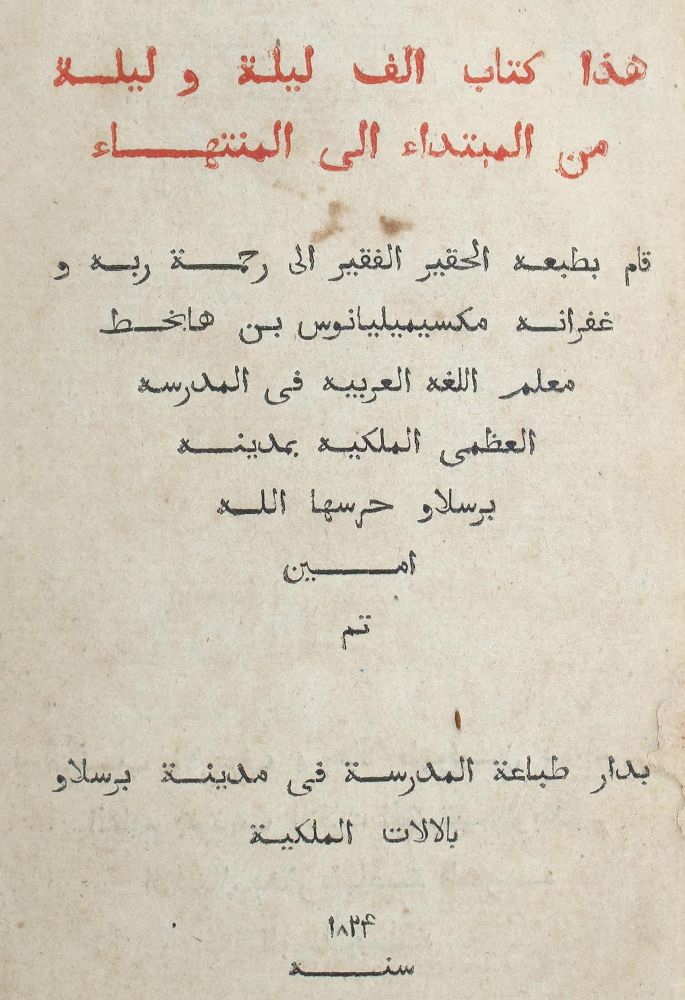 هذا كتاب الف ليلة و ليلة
من المبتداء الى المنتهاء
قام بطبعه الحقير الفقير الى رحمة ربه و
غفرانه مكسيميليانوس بن هابخط
معلم اللغه العربيه فى المدرسه
العظمى الملكيه بمدينه
برسلاو حرسها الله
امين
تم
بدار طباعة المدرسة فى مدينة برسلاو
بالالات الملكية
١٨٢۴
سنه